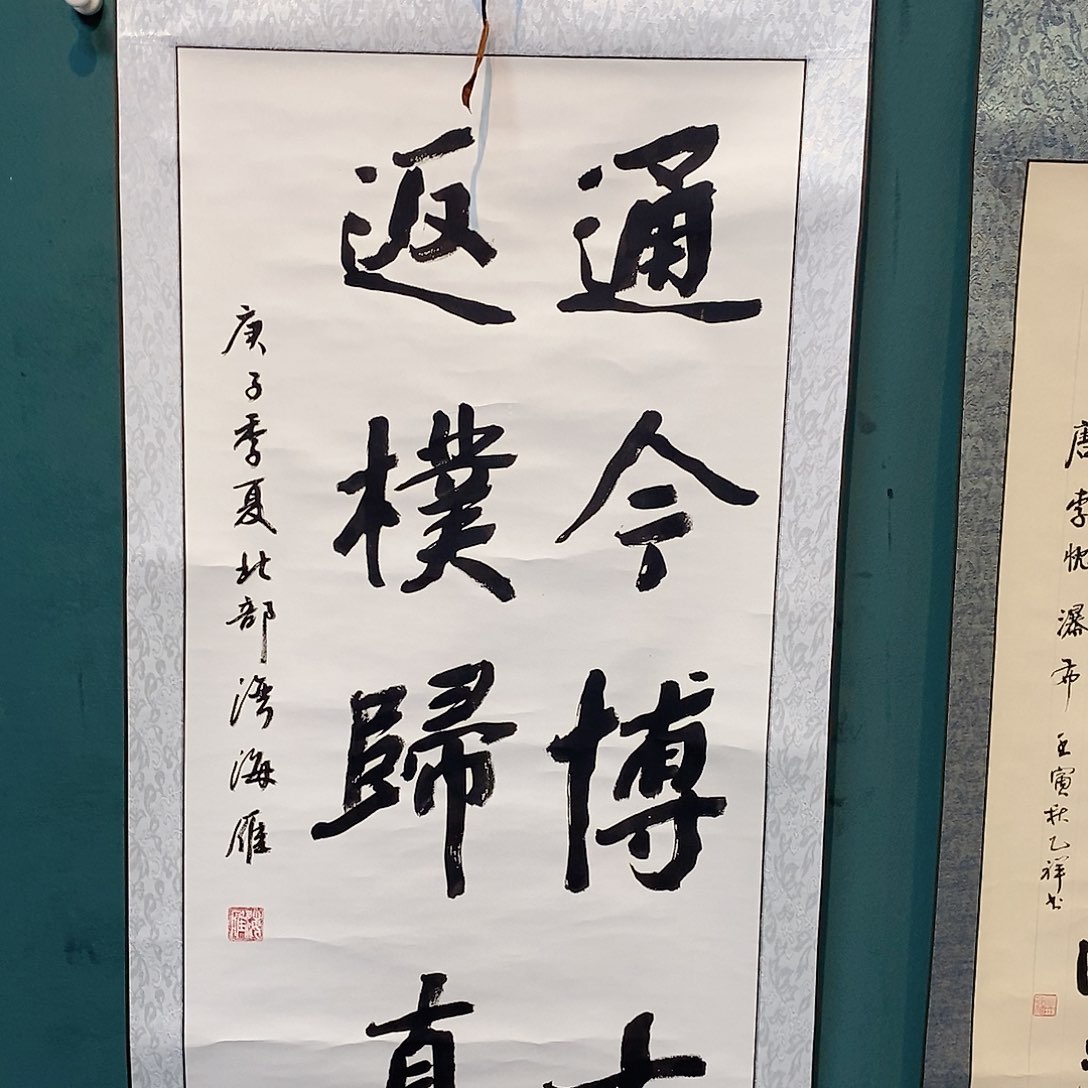 通今博古
返樸歸真
庚子季夏北部湾海雁
海雁
唐李忱瀑布壬寅秋乙祥书